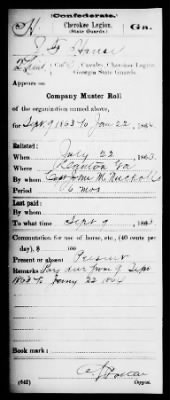 Confederate.
H
Cherokee Legion.
(State Guards.)
Ga.
2 Lieut, Co. C, Cavalry, Cherokee Legion,
Georgia State Guards.
Appears on
Company Muster Roll
of the organization named above,
for Sept. 9 1863 to Jan 22, 1864.
Enlisted:
When July 22, 1863.
Where Canton Ga.
By whom Capt John M. Nuckolls
Period 6 mos
Last paid:
By whom
To what time Sept 9, 186
Commutation for use of horse, etc., (40 cents per
day), $ 100
Present or absent Present
Remarks: Pay due from 9 Sept
1863 to Jany 22 1864
Book mark:
(642)
Copyist.